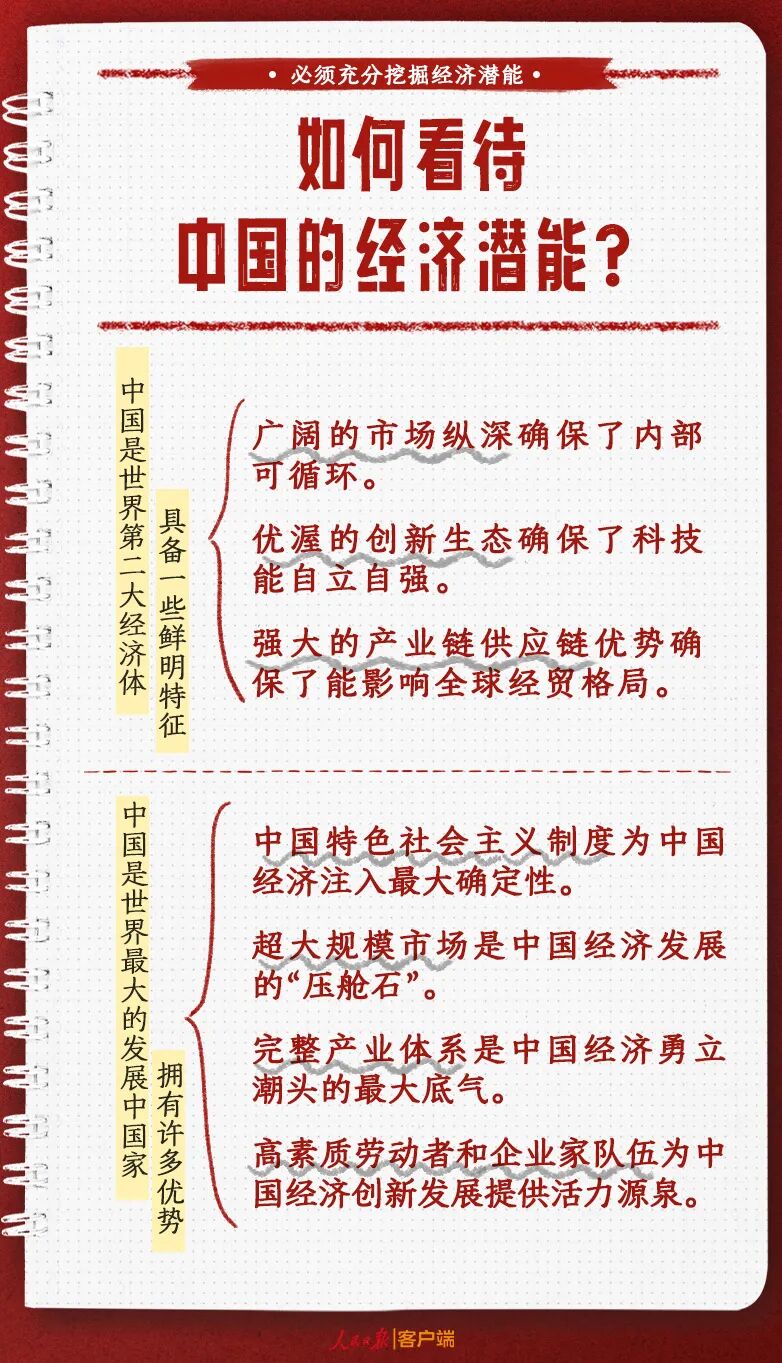 • 必须充分挖掘经济潜能 •
如何看待
中国的经济潜能?
中国是世界第二大经济体
具备一些鲜明特征
广阔的市场纵深确保了内部
可循环。
优渥的创新生态确保了科技
能自立自强。
强大的产业链供应链优势确
保了能影响全球经贸格局。
中国是世界最大的发展中国家
拥有许多优势
中国特色社会主义制度为中国
经济注入最大确定性。
超大规模市场是中国经济发展
的“压舱石”。
完整产业体系是中国经济勇立
潮头的最大底气。
高素质劳动者和企业家队伍为中
国经济创新发展提供活力源泉。
人民日报|客户端